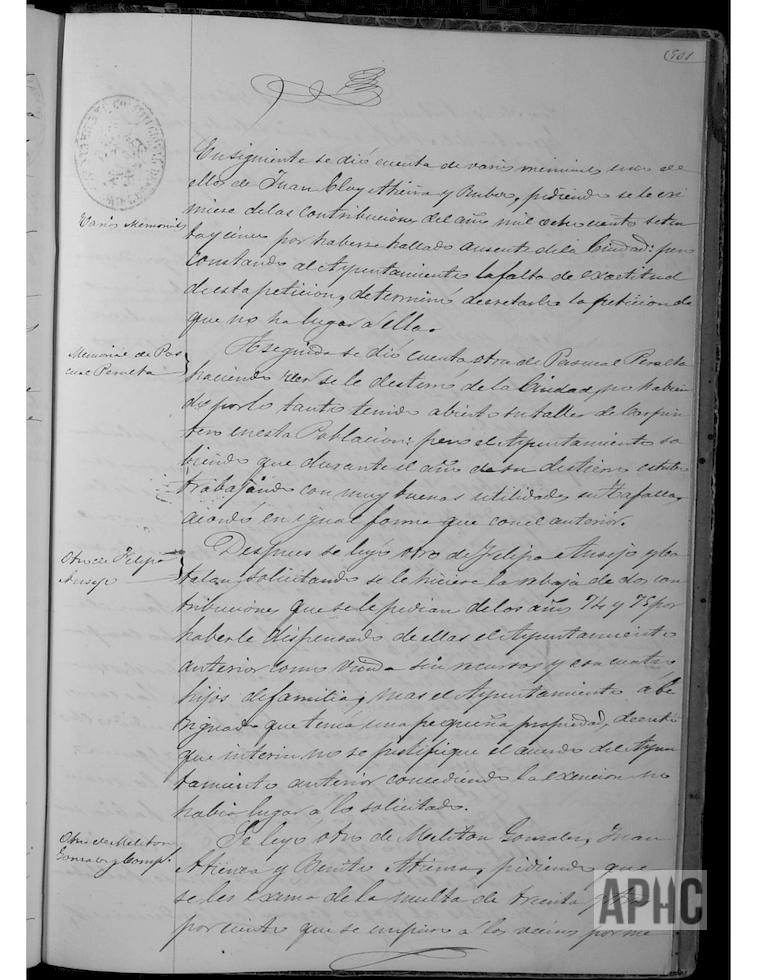 501
En siguiente se dió cuenta de varios memoriales uno de
ellos de Juan Cloy Atienza y Rubio, pidiendo se le exi
miese de las contribuciones del año mil ochocientos seten
Varios Memoriales
ta y cinco por haberse hallado ausente de la Ciudad: pero
constando al Ayuntamiento la falta de exactitud
de esta peticion, determinó decretarle la peticion de
que no ha lugar á ella.
A seguida se dió cuenta otra de Pascual Peralta
Memorial de Pas
cual Peralta
haciendo ver se le desterró de la Ciudad, no habien
do por lo tanto tenido abierto su taller de Carpin
tero en esta Poblacion: pero el Ayuntamiento sa
biendo que durante el año de su destierro estubo
trabajando con muy buenas utilidades en Tafalla,
acordó en igual forma que con el anterior.
Despues se leyó otro de Felipa Ausejo y
Otro de Felipa
Ausejo
solicitando se le hiciese la rebaja de dos con
tribuciones que se le pedian de los años 74 y 75 por
haberle dispensado de ellas el Ayuntamiento
anterior como viuda sin recursos y con cuatro
hijos de familia, mas el Ayuntamiento abe
riguado que tenia una pequeña propiedad, decretó
que interin no se justifique el acuerdo del Ayun
tamiento anterior concediendo la exencion no
habia lugar á lo solicitado.
Se leyó otro de Meliton Gonzalez, Juan
Otro de Meliton
Gonzalez y Comp.ª
Atienza y Benito Atienza, pidiendo que
se les exima de la multa de treinta
por ciento que se impuso á los vecinos por
APHC